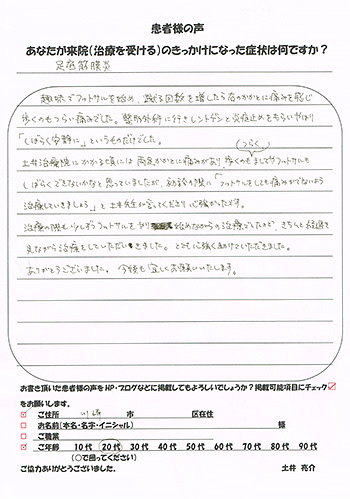 患者様の声
あなたが来院(治療を受ける)のきっかけになった症状は何ですか?
足底筋膜炎
趣味でフットサルを始め、蹴る回数を増したら右のかかとに痛みを感じ
歩くのもつらい痛みでした。整形外科に行きレントゲンと炎症止めをもらいやはり
「しばらく安静に」というものだけでした。
土井治療院にかかる頃には両足かかとに痛みがあり、歩くのもましてやフットサルも
つらく
しばらくできないかなと思っていましたが、初診の際に「フットサルをしても痛みがでないよう
治療していきましょう」と土井先生が言ってくださり心強かったです。
治療の際も少しずつフットサルをやり始めながらの治療でしたので、きちんと経過を
見ながら治療をしていただいきました。とても心強く助けていただきました。
ありがとうございました。今後も宜しくお願いいたします。
お書き頂いた患者様の声をHP・ブログなどに掲載してもよろしいでしょうか?掲載可能項目にチェック
をお願いします。
ご住所 川崎 市 区在住
お名前(本名・名字・イニシャル) 様
ご職業
ご年齢 10代 20代 30代 40代 50代 60代 70代 80代 90代
(○で囲ってください)
ご協力ありがとうございました。 土井 亮介